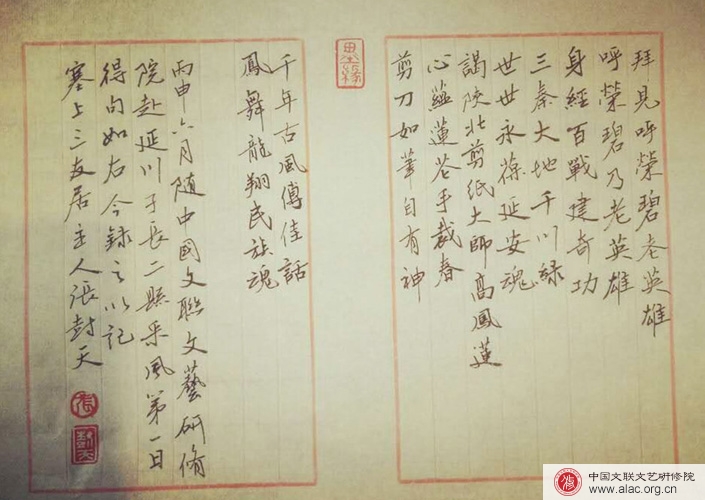 拜見呼榮碧老英雄
呼榮碧乃老英雄
身經百戰建奇功
三秦大地千川綠
世世永葆延安魂
謁陝北剪紙大師高鳳蓮
心蘊蓮花手裁春
剪刀如筆自有神
千年古風傳佳話
鳳舞龍翔民族魂
丙申六月隨中國文聯文藝研修
院赴延川子長二縣采風第一日
得句如右今錄之以記
塞上三友居主人張封天
中国文联文艺研修院
www.alac.org.cn